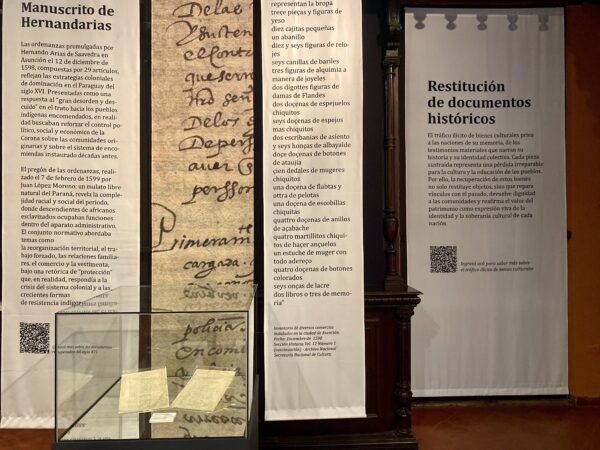 Manuscrito de
Hernandarias
Las ordenanzas promulgadas por
Hernando Arias de Saavedra en
Asunción el 12 de diciembre de
1598, compuestas por 29 artículos,
reflejan las estrategias coloniales
de dominación en el Paraguay del
siglo XVI. Presentadas como una
respuesta al "gran desorden y des-
cuido" en el trato hacia los pueblos
indígenas encomendados, en reali-
dad buscaban reforzar el control po-
lítico, social y económico de la
Corona sobre las comunidades ori-
ginarias y sobre el sistema de enco-
miendas instaurado décadas antes.
El pregón de las ordenanzas, reali-
zado el 7 de febrero de 1599 por
Juan López Moreno; un mulato libre
natural del Paraná, revela la comple-
jidad racial y social del periodo,
donde descendientes de africanos
esclavizados ocupaban funciones
dentro del aparato administrativo.
El conjunto normativo abordaba
temas como
la reorganización territorial, el tra-
bajo forzado, las relaciones familia-
res, el comercio y la vestimenta,
bajo una retórica de "protección"
que, en realidad, respondía a la
crisis del sistema colonial y a las
crecientes formas
de resistencia indígena
sustento
el conta
que serm
Primeram
cargada
policia
representan la bropa
treçe pieças y figuras de
yeso
diez cajitas pequeñas
un abanillo
diez y seys figuras de relo-
jes
seys canillas de bariles
tres figuras de alquimia a
manera de joyeles
dos digottes figuras de
damas de Flandes
dos doçenas de espejuelos
chiquitos
seys doçenas de espejus
mas chiquitos
dos escribanias de asiento
y seys honças de albayalde
doçe doçenas de botones
de atauja
çien dedales de mugeres
chiquitos
una doçena de flabtas y
ottra de pelotas
una doçena de escobillas
chiquitas
quattro doçenas de anillos
de açabache
quatro martillitos chiqui-
tos de haçer ançuelos
un estuche de muger con
todo adereço
quatro doçenas de botones
colorados
seys onças de lacre
dos libros o tres de memo-
ria"
Inventario de diversos comercios
instalados en la ciudad de Asunción.
Fecha: Diciembre de 1598
Sección Historia Vol. 12 Número 1
- Archivo Nacional
Secretaría Nacional de Cultura.
Restitución
de documentos
históricos
El tráfico ilícito de bienes culturales priva
a las naciones de su memoria, de los
testimonios materiales que narran su
historia y su identidad colectiva. Cada pieza
sustraída representa una pérdida irreparable
para la cultura y la educación de los pueblos.
Por ello, la recuperación de estos bienes
no solo restituye objetos, sino que repara
vínculos con el pasado, devuelve dignidad
a las comunidades y reafirma el valor del
patrimonio como expresión viva de la
identidad y la soberanía cultural de cada
nación.
Ingresá acá para saber más sobre
el tráfico ilícito de bienes culturales